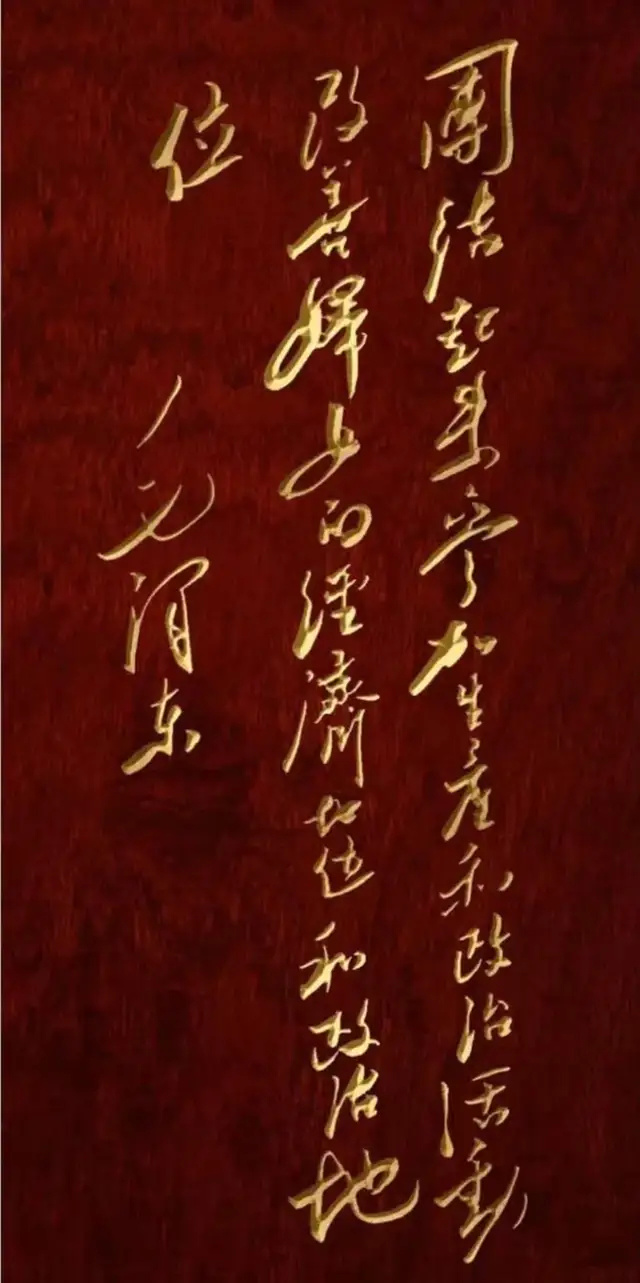 團结起来参加生產和政治活動
改善婦女的經濟地位和政治地
位
毛泽东